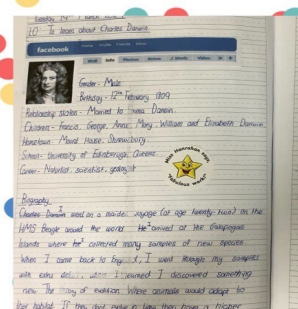 Tuesday 19th
LO To learn about Charles Darwin.
facebook
Wall Info Photos Notes Video
Gender - Male
Birthday - 12th February 1809
Relationship Status - Married to Emma Darwin.
Children - Francis, George, Anne, Mary, William and Elizabeth Darwin
Hometown - Mount House, Shrewsbury
School - University of Edinburgh,
Career - Naturalist, scientist, geologist
Miss Hanrahan says
"Fabulous work!"
Biography
Charles Darwin went on a maiden voyage (at age twenty-two) on the
HMS Beagle around the world. He I arrived at the Galapagos
Islands where he I collected many samples of new species
When I came back to England, I went through my samples
with extra detail, when I returned I discovered something
new. The theory of evolution. Where animals would adapt to
their habitat. If they dont evolve in time they have a higher